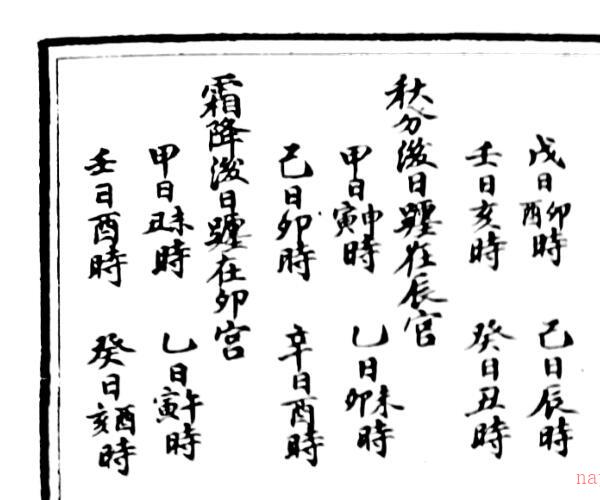 戊日卯酉時 己日辰時
壬日亥時 癸日丑時
秋分後日躔在辰宮
甲日申寅時 乙日未卯時
己日卯時 辛日酉時
霜降後日躔在卯宮
甲日未丑時 乙日午寅時
壬日酉時 癸日酉亥時
na